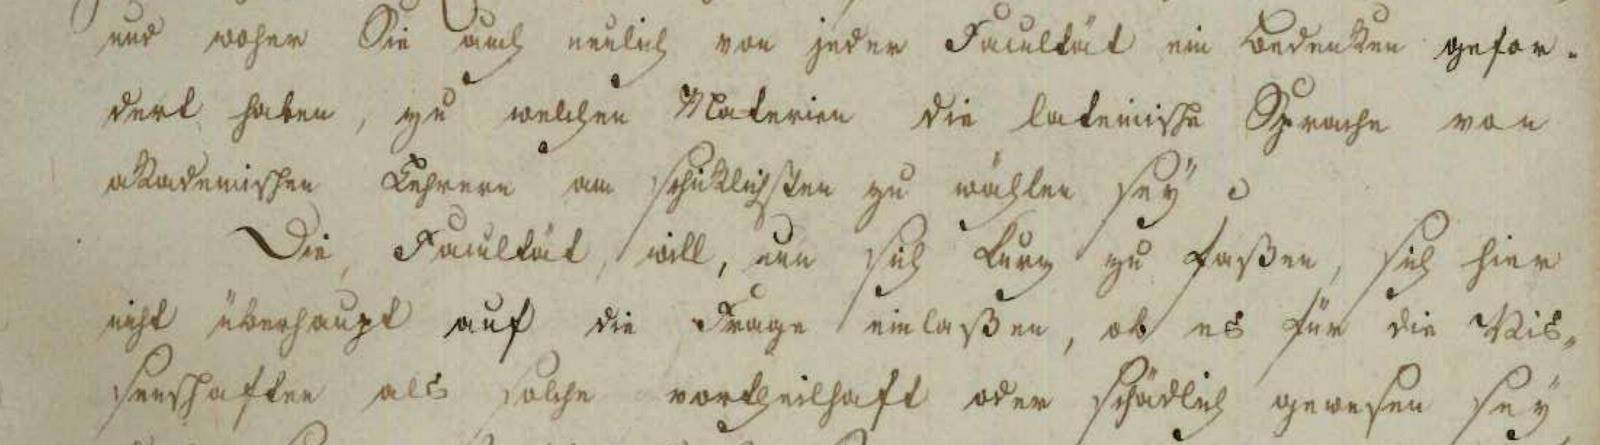 und woher Sie auch neulich von jeder Facultät ein Bedenken gefor-
dert haben, zu welchen Materien die lateinische Sprache von
akademischen Lehrern am schiklichsten zu wählen seÿ.
Die Facultät, will, um sich kurz zu faßen, sich hier
nicht überhaupt auf die Frage einlaßen, ob es für die Wis-
senschaften als solche vortheilhaft oder schädlich gewesen seÿ